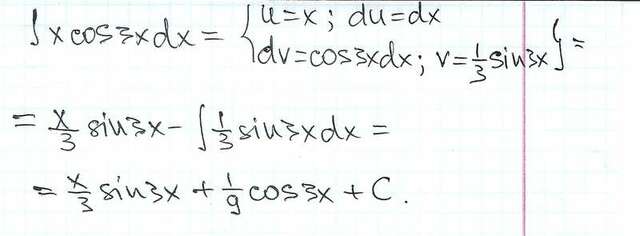 ∫ x cos3x dx = { u = x ; du = dx
dv = cos3x dx ; v = 1/3 sin3x } =
= x/3 sin3x − ∫ 1/3 sin3x dx =
= x/3 sin3x + 1/9 cos3x + C.